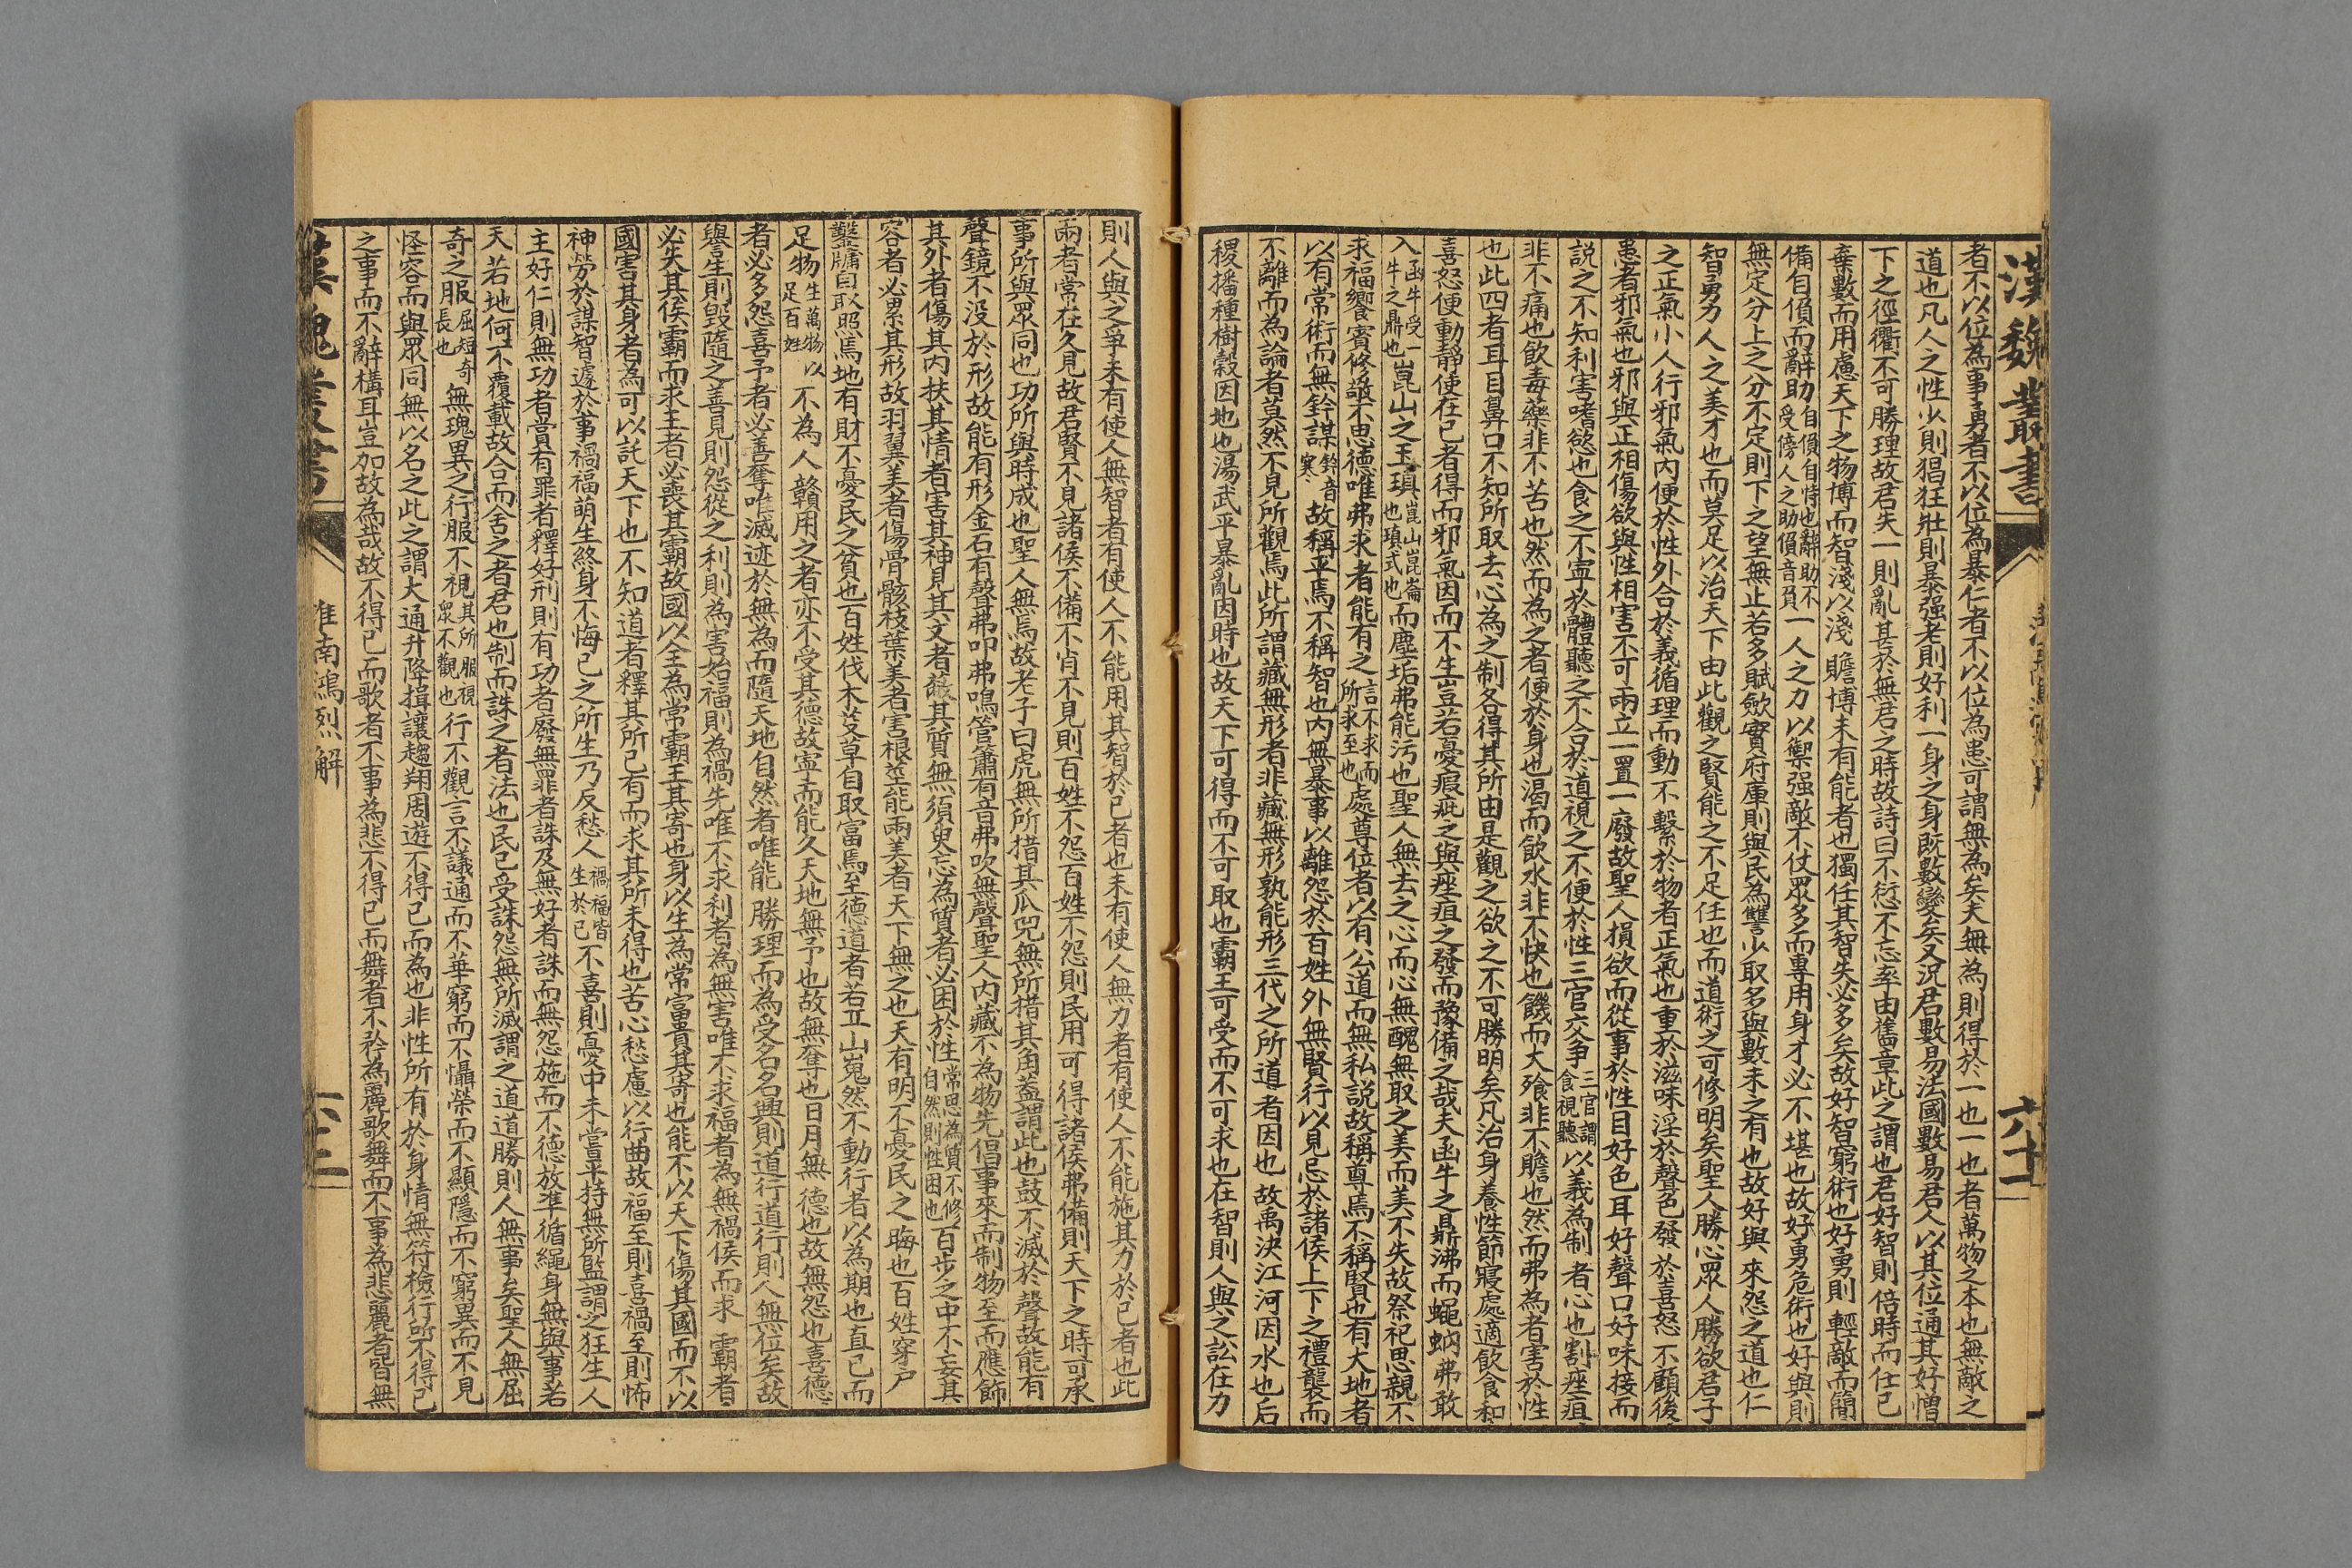 漢魏叢書
六十二
者不以位為事勇者不以位為暴仁者不以位為患可謂無為矣夫無為則得於一也一也者萬物之本也無敵之
道也凡人之性少則猖狂壯則暴强老則好利一身之身既數變矣又況君數易法國數易君人以其位通其好憎
下之徑衢不可勝理故君失一則亂甚於無君之時故詩曰不愆不忘率由舊章此之謂也君好智則倍時而任已
棄數而用慮天下之物博而智淺以淺贍博未有能者也獨任其智失必多矣故好智窮術也好勇則輕敵而簡
備自偩而辭助自偩自恃也辭助不受傍人之助偩音負一人之力以禦强敵不仗眾多而專用身才必不堪也故好勇危術也好與則
無定分上之分不定則下之望無止若多賦歛實府庫則與民為讐少取多與數未之有也故好與來怨之道也仁
智勇力人之美才也而莫足以治天下由此觀之賢能之不足任也而道術之可修明矣聖人勝心眾人勝欲君子
之正氣小人行邪氣內便於性外合於義循理而動不繫於物者正氣也重於滋味淫於聲色發於喜怒不顧後
患者邪氣也邪與正相傷欲與性相害不可兩立一置一廢故聖人損欲而從事於性目好色耳好聲口好味接而
説之不知利害嗜慾也食之不寧於體聽之不合於道視之不便於性三官交爭三官謂食視聽以義為制者心也割痤疽
非不痛也飲毒藥非不苦也然而為之者便於身也渴而飲水非不快也饑而大飱非不贍也然而弗為者害於性
也此四者耳目鼻口不知所取去心為之制各得其所由是觀之欲之不可勝明矣凡治身養性節寢處適飲食和
喜怒便動靜使在已者得而邪氣因而不生豈若憂瘕疵之與痤疽之發而豫備之哉夫函牛之鼎沸而蠅蚋弗敢
入函牛受一牛之鼎也崑山之玉瑱崑山崑崙也瑱式也而塵垢弗能污也聖人無去之心而心無醜無取之美而美不失故祭祀思親不
求福饗賓修敬不思德唯弗求者能有之言不求而所求至也處尊位者以有公道而無私説故稱尊焉不稱賢也有大地者
以有常術而無鈐謀鈐音寒故稱平焉不稱智也內無暴事以離怨於百姓外無賢行以見忌於諸侯上下之禮襲而
不離而為論者莫然不見所觀焉此所謂藏無形者非藏無形孰能形三代之所道者因也故禹決江河因水也后
稷播種樹穀因地也湯武平暴亂因時也故天下可得而不可取也霸王可受而不可求也在智則人與之訟在力
則人與之爭未有使人無智者有使人不能用其智於已者也未有使人無力者有使人不能施其力於已者也此
兩者常在久見故君賢不見諸侯不備不肖不見則百姓不怨百姓不怨則民用可得諸侯弗備則天下之時可承
事所與眾同也功所與時成也聖人無焉故老子曰虎無所措其爪兕無所措其角葢謂此也鼓不滅於聲故能有
聲鏡不没於形故能有形金石有聲弗叩弗鳴管簫有音弗吹無聲聖人內藏不為物先倡事來而制物至而應飾
其外者傷其內扶其情者害其神見其文者蔽其質無須臾忘為質者必困於性常思為質不修自然則性困也百步之中不妄其
容者必累其形故羽翼美者傷骨骸枝葉美者害根莖能兩美者天下無之也天有明不憂民之晦也百姓穿户
鑿牖自取照焉地有財不憂民之貧也百姓伐木芟草自取富焉至德道者若丘山嵬然不動行者以為期也直已而
足物生萬物以足百姓不為人贛用之者亦不受其德故寧而能久天地無予也故無奪也日月無德也故無怨也喜德
者必多怨喜予者必善奪唯滅迹於無為而隨天地自然者唯能勝理而為受名名興則道行道行則人無位矣故
譽生則毀隨之善見則怨從之利則為害始福則為禍先唯不求利者為無害唯不求福者為無禍侯而求霸者
必失其侯霸而求王者必喪其霸故國以全為常霸王其寄也身以生為常富貴其寄也能不以天下傷其國而不以
國害其身者為可以託天下也不知道者釋其所已有而求其所未得也苦心愁慮以行曲故福至則喜禍至則怖
神勞於謀智遽於事禍福萌生終身不悔已之所生乃反愁人禍福皆生於已不喜則憂中未嘗平持無所監謂之狂生人
主好仁則無功者賞有罪者釋好刑則有功者廢無罪者誅及無好者誅而無怨施而不德放凖循繩身無與事若
天若地何不覆載故合而舍之者君也制而誅之者法也民已受誅怨無所滅謂之道道勝則人無事矣聖人無屈
奇之服屈短奇長也無瑰異之行服不視其所服視眾不觀也行不觀言不議通而不華窮而不懾榮而不顯隱而不窮異而不見
怪容而與眾同無以名之此之謂大通升降揖讓趨翔周遊不得已而為也非性所有於身情無符檢行所不得已
之事而不辭構耳豈加故為哉故不得已而歌者不事為悲不得已而舞者不矜為麗歌舞而不事為悲麗者皆無
漢魏叢書
淮南鴻烈解
六十三